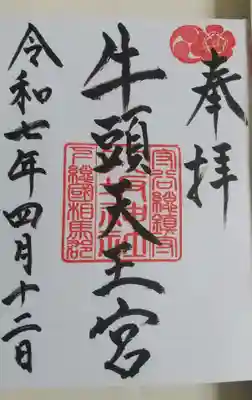 奉拝
牛頭天王宮
令和七年四月十二日
下総國相馬郡